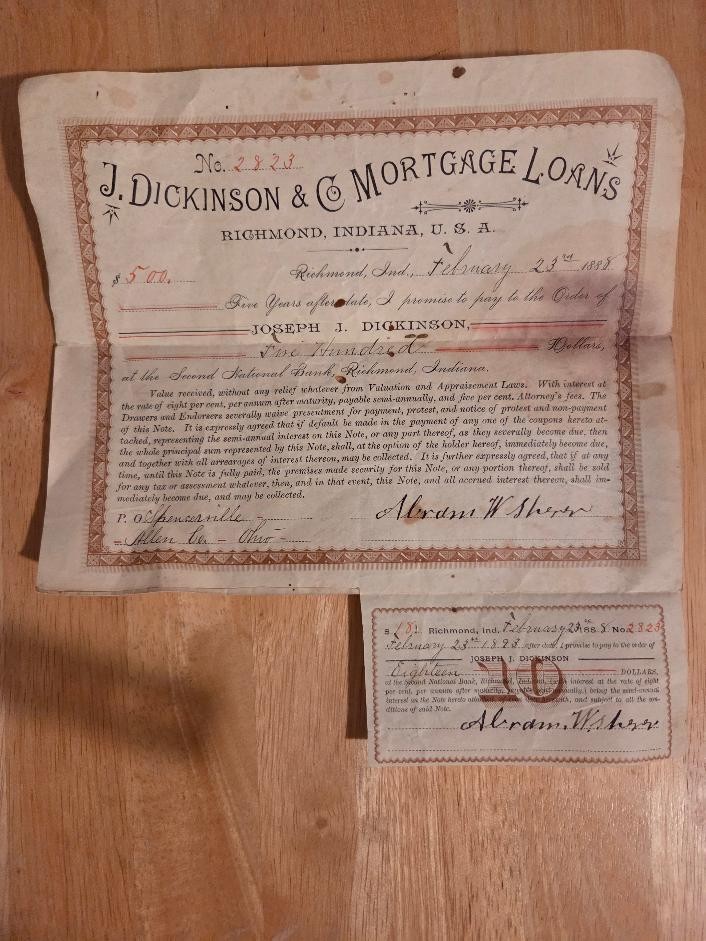 No. 2823
J. DICKINSON & Co MORTGAGE LOANS
RICHMOND, INDIANA, U. S. A.
$ 500. Richmond, Ind., February 23rd 1888
Five Years after date, I promise to pay to the Order of
JOSEPH J. DICKINSON,
Five Hundred Dollars,
at the Second National Bank, Richmond, Indiana.
Value received, without any relief whatever from Valuation and Appraisement Laws. With interest at
the rate of eight per cent. per annum after maturity, payable semi-annually, and five per cent. Attorney's fees. The
Drawers and Endorsers severally waive presentment for payment, protest, and notice of protest and non-payment
of this Note. It is expressly agreed that if default be made in the payment of any one of the coupons hereto at-
tached, representing the semi-annual interest on this Note, or any part thereof, as they severally become due, then
the whole principal sum represented by this Note, shall, at the option of the holder hereof, immediately become due,
and together with all arrearages of interest thereon, may be collected. It is further expressly agreed, that if at any
time, until this Note is fully paid, the premises made security for this Note, or any portion thereof, shall be sold
for any tax or assessment whatever, then, and in that event, this Note, and all accrued interest thereon, shall im-
mediately become due, and may be collected.
P. O. Spencerville Abram W
Allen Co. - Ohio -
$ 18. Richmond, Ind. February 23rd 1888 No. 2823
February 23rd 1893 after date, I promise to pay to the order of
JOSEPH J. DICKINSON
Eighteen DOLLARS,
10
at the Second National Bank, Richmond, Indiana, (with interest at the rate of eight
per cent. per annum after maturity, payable semi-annually,) being the semi-annual
interest on the Note hereto and subject to all the con-
ditions of said Note.
Abram W